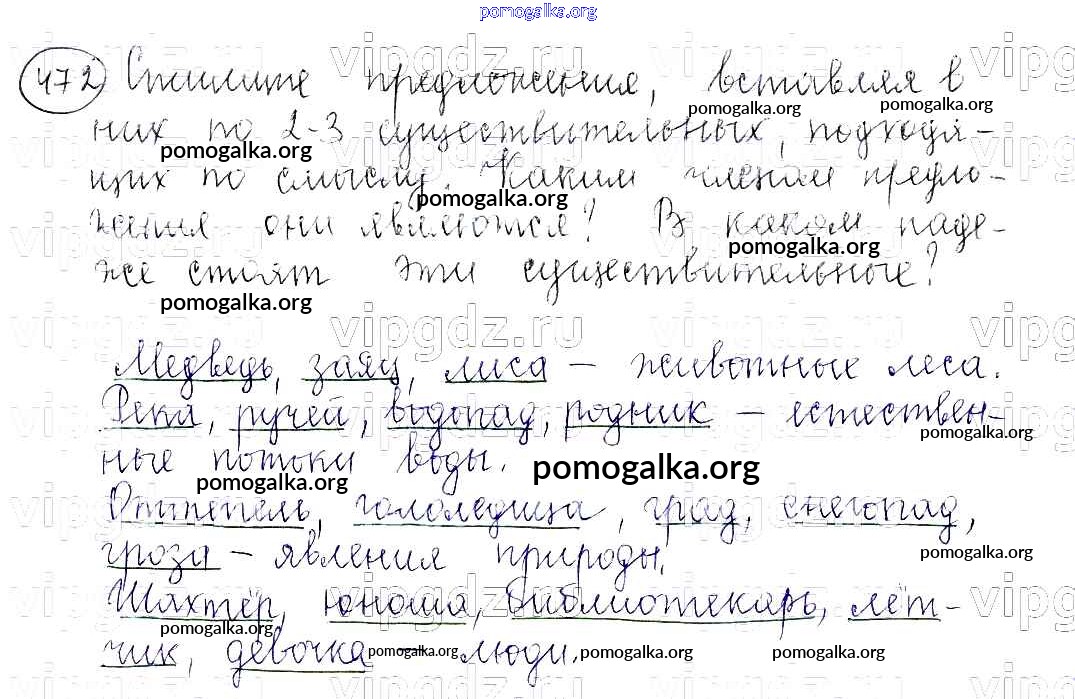 pomogalka.org
472 Спишите предложения, вставляя в
них по 2-3 существительных, подходя-
щих по смыслу. Каким членом предло-
жения они являются? В каком паде-
же стоят эти существительные?
Медведь, заяц, лиса – животные леса.
Река, ручей, водопад, родник – естествен-
ные потоки воды.
Оттепель, гололедица, град, снегопад,
гроза – явления природы.
Шахтёр, юноша, библиотекарь, лёт-
чик, девочка – люди.